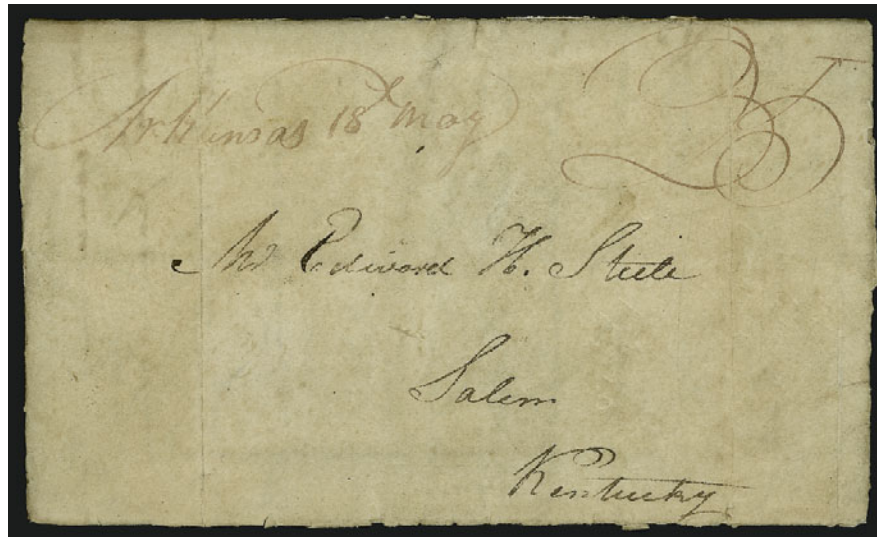 Arkinsas 18th May
25
Mr Edward H. Steele
Salem
Kentucky